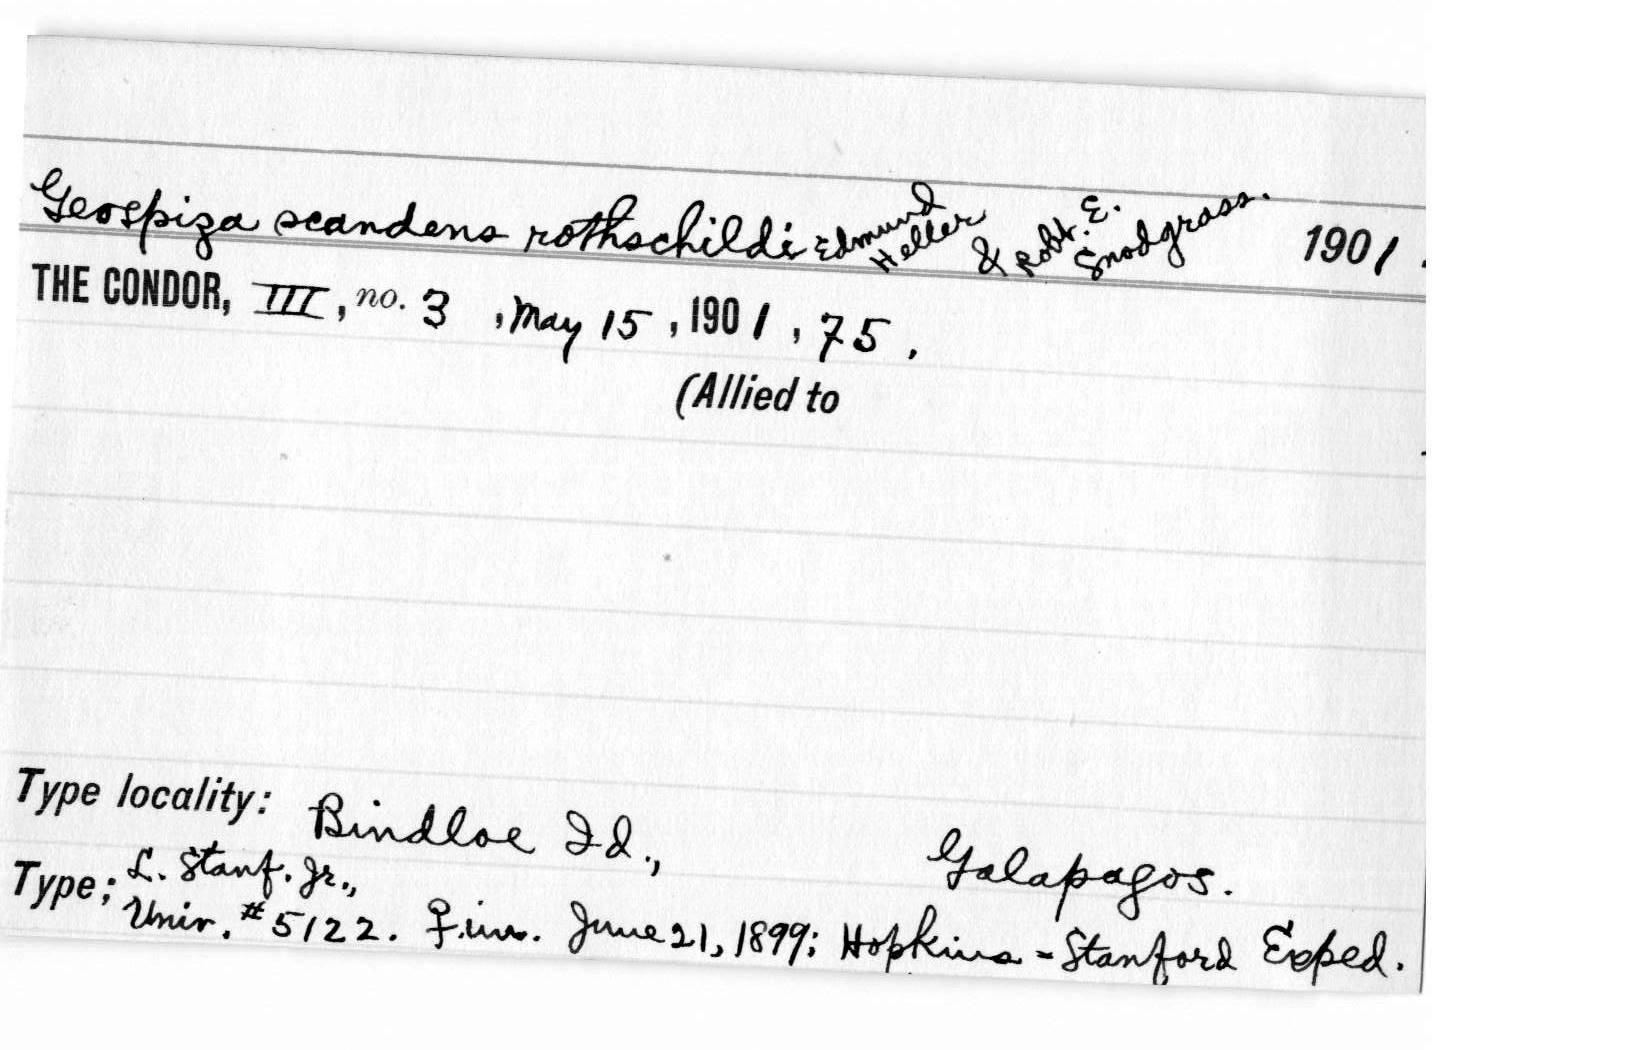 Geospiza scandens rothschildi Edmund Heller & Robt. E. Snodgrass. 1901.
THE CONDOR, III, no. 3, May 15, 1901, 75.
(Allied to
Type locality: Bindloe Id., Galapagos.
Type; L. Stanf. Jr.,
Univ. #5122. ♀ im. June 21, 1899; Hopkins-Stanford Exped.